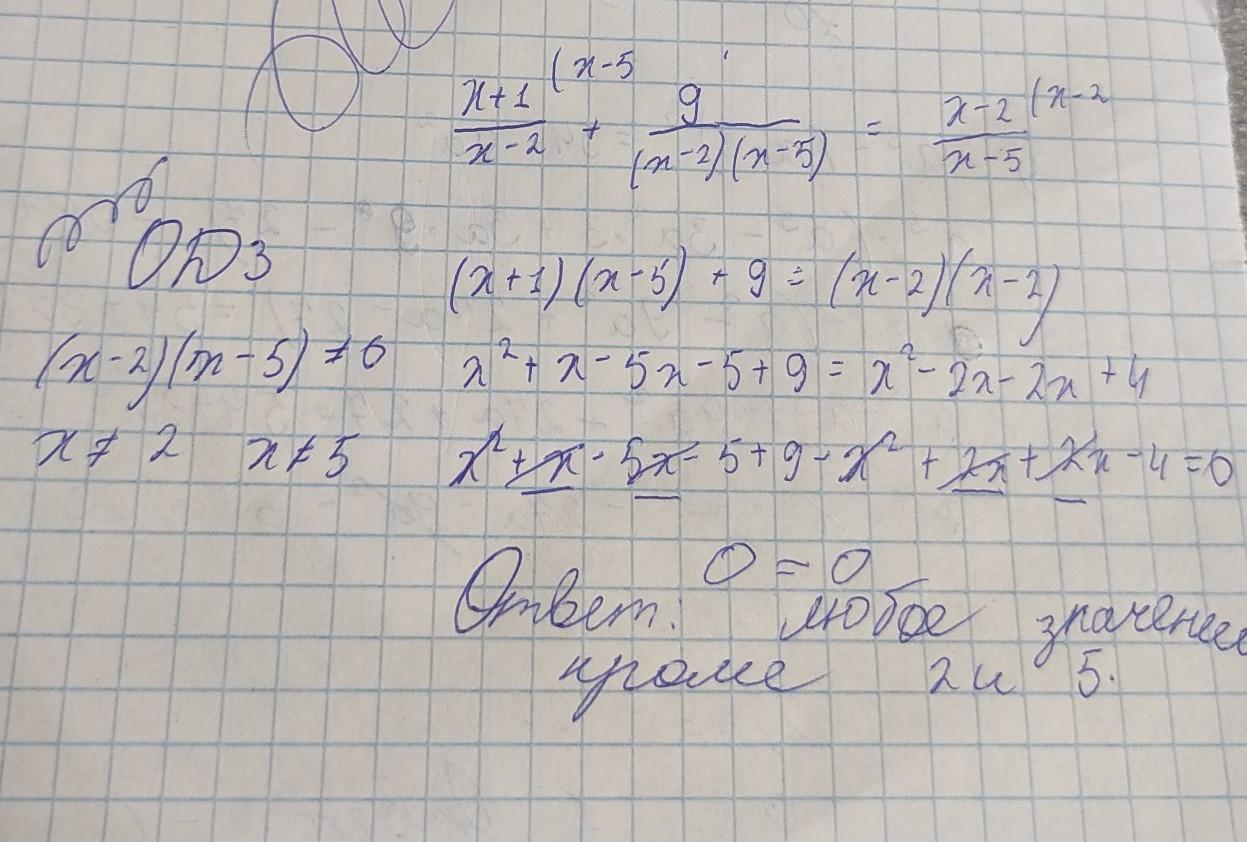 (x-5 (x-2
x+1/x-2 + 9/(x-2)(x-5) = x-2/x-5
ОДЗ
(x+1)(x-5) + 9 = (x-2)(x-2)
(x-2)(x-5) ≠ 0
x² + x - 5x - 5 + 9 = x² - 2x - 2x + 4
x ≠ 2 x ≠ 5
x² + x - 5x - 5 + 9 - x² + 2x + 2x - 4 = 0
0 = 0
Ответ: любое значение
кроме 2 и 5.